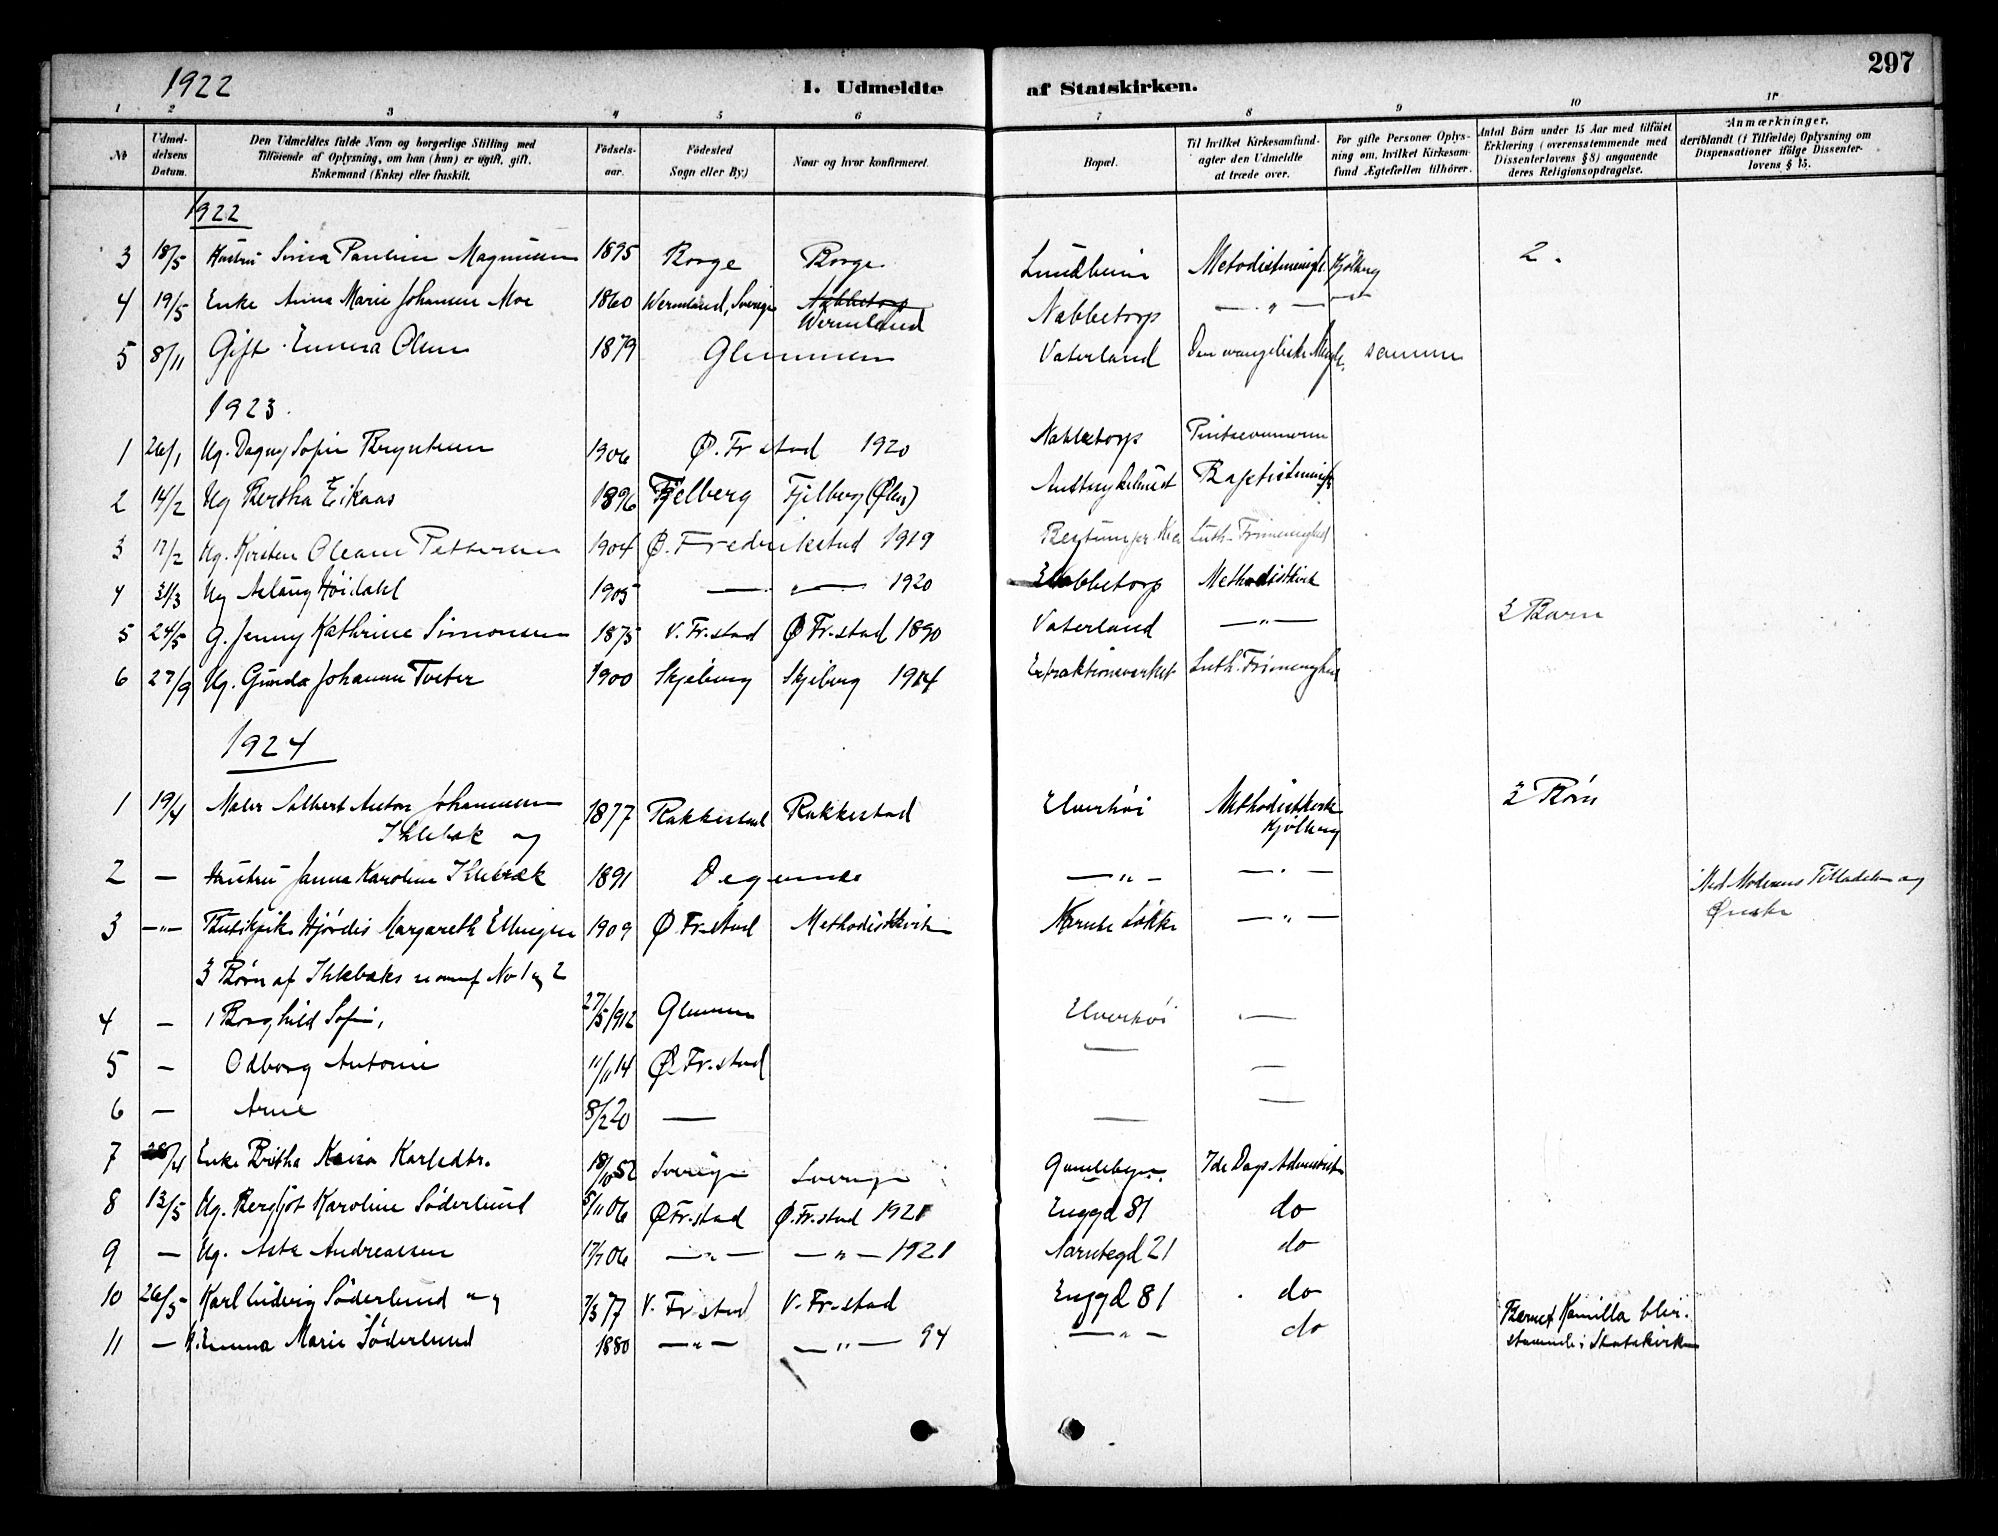 297
1922
I. Udmeldte af Statskirken.
1 2 3 4 5 6 7 8 9 10 11
No
Udmel-
delsens
Datum.
Den Udmeldtes fulde Navn og borgerlige Stilling med
Tilföiende af Oplysning, om han (hun) er ugift, gift,
Enkemand (Enke) eller fraskilt.
Födsels-
aar.
Födested
Sogn eller By.)
Naar og hvor konfirmeret.
Bopæl.
Til hvilket Kirkesamfund-
agter den Udmeldte
at træde over.
For gifte Personer Oplys-
ning om, hvilket Kirkesam-
fund Ægtefællen tilhörer.
Antal Börn under 15 Aar med tilföiet
Erklæring (overensstemmende med
Dissenterlovens § 8) angaaende
deres Religionsopdragelse.
Anmærkninger,
deriblandt (i Tilfælde) Oplysning om
Dispensationer ifölge Dissenter-
lovens § 15.
1922
3 18/5 Hustru Pauline Magnussen 1895 Borge Borge Lundheim Kjølberg 2.
4 19/5 Enke Anna Marie Johansen Moe 1860 Wermland, Sverige Nabbetorp Wermland Nabbetorp — „ — — „ —
5 8/11 Gift Emma Olsen 1879 Glemmen Vaterland Den evangeliske samme
1923.
1 26/1 Ug. Dagny Sofie Bryntesen 1906 Ø. Fr.stad 1920 Nabbetorp Pintsevennerne
2 14/2 Ug Bertha Eikaas 1896 Fjelberg Fjelberg (Ølen)
3 17/2 Ug. Kirsten Oleane Pettersen 1904 Ø. Fredrikstad 1919 Luth. Frimenighed
4 31/3 Ug Aslaug Høidahl 1905 — „ — 1920 Nabbetorp Methodistkirk
5 24/5 G. Jenny Kathrine Simonsen 1875 V. Fr.stad Ø Fr.stad 1890 Vaterland — „ — 3 Barn
6 27/9 Ug. Gunda Johanne Tveter 1900 Skjeberg Skjeberg 1914 Extraktionsverket Luth. Frimenighed
1924
1 19/4 Maler Albert Anton Johannesen 1877 Rakkestad Rakkestad Elverhøi Methodistkirke 3 Børn
Ihlebæk og Kjølberg
2 — Hustru Janna Karoline Ihlebæk 1891 Degernes — „ — — „ —
3 — „ — Hjørdis Margareth Ellingsen 1909 Ø Fr.stad Methodistkirke Løkke — „ — Med Moderens Tilladelse og
Ønske
3 Børn af Ihlebæks No 1 og 2
4 — 1 Borghild Sofie, 27/5 1912 Glemmen Elverhøi —
5 — Odborg Antonie 11/11 14 Ø Fr.stad — —
6 — Arne 8/2 20 — — —
7 28/4 Enke Britha Kaisa Karlsdtr. 18/10 52 Sverige Sverige Gamlebyen 7de Dags Adventister
8 13/5 Ug. Bergljot Karoline Söderlund 5/11 06 Ø Fr.stad Ø. Fr.stad 1921 Enggd 81 do
9 — Ug. Asta Andreassen 17/7 06 — „ — — „ — 1921 21 do
10 26/5 Karl Ludvig Söderlund og 7/3 77 V. Fr.stad V. Fr.stad Enggd 81 do Barnet Kamilla blir
11 — H. Emma Marie Söderlund 1880 — „ — — „ — 94 — „ — do staaende i Statskirken